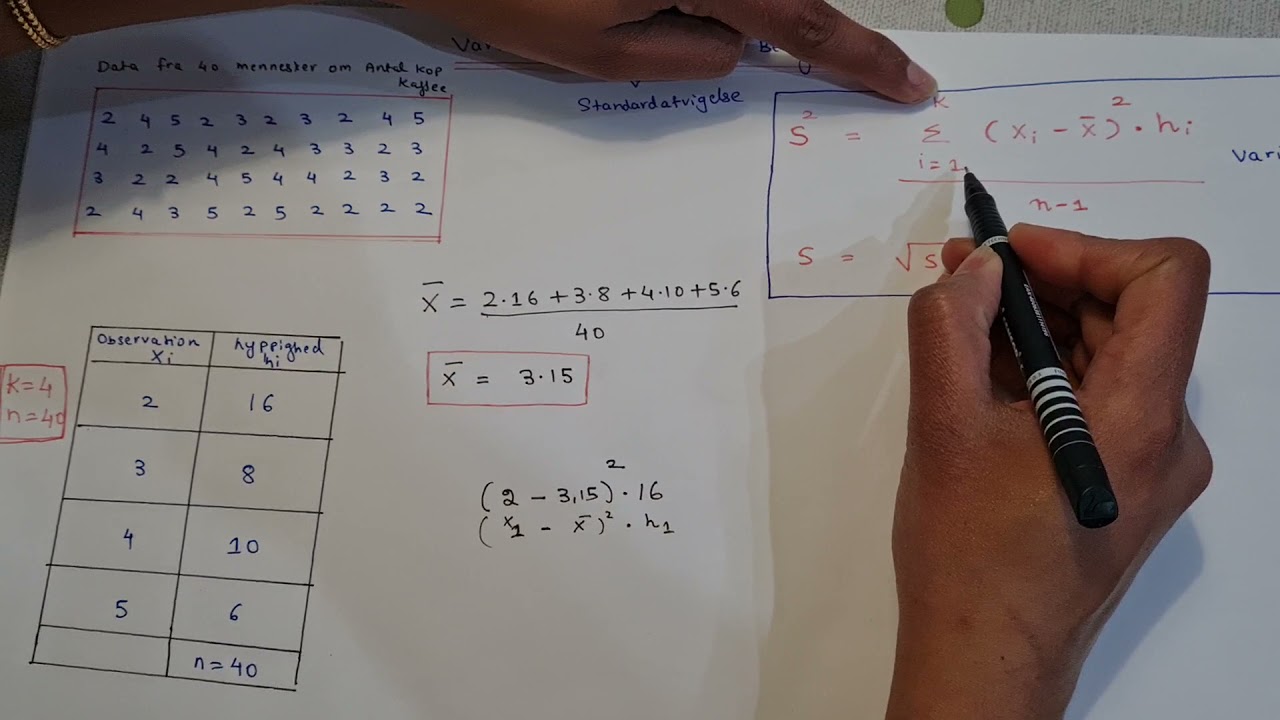 Data fra 40 mennester om Antal kop
Kaffee
2 4 5 2 3 2 3 2 4 5
4 2 5 4 2 4 3 3 2 3
3 2 2 4 5 4 4 2 3 2
2 4 3 5 2 5 2 2 2 2
Standardatvigelse
S² = Σ (xᵢ - x̄)² · hᵢ
k
i = 1
n-1
S = √S
Vari
x̄ = 2·16 + 3·8 + 4·10 + 5·6
40
x̄ = 3·15
k=4
n=40
Observation xᵢ hyppighed hᵢ
2 16
3 8
4 10
5 6
n = 40
(2 - 3,15)² · 16
(x₁ - x̄)² · h₁